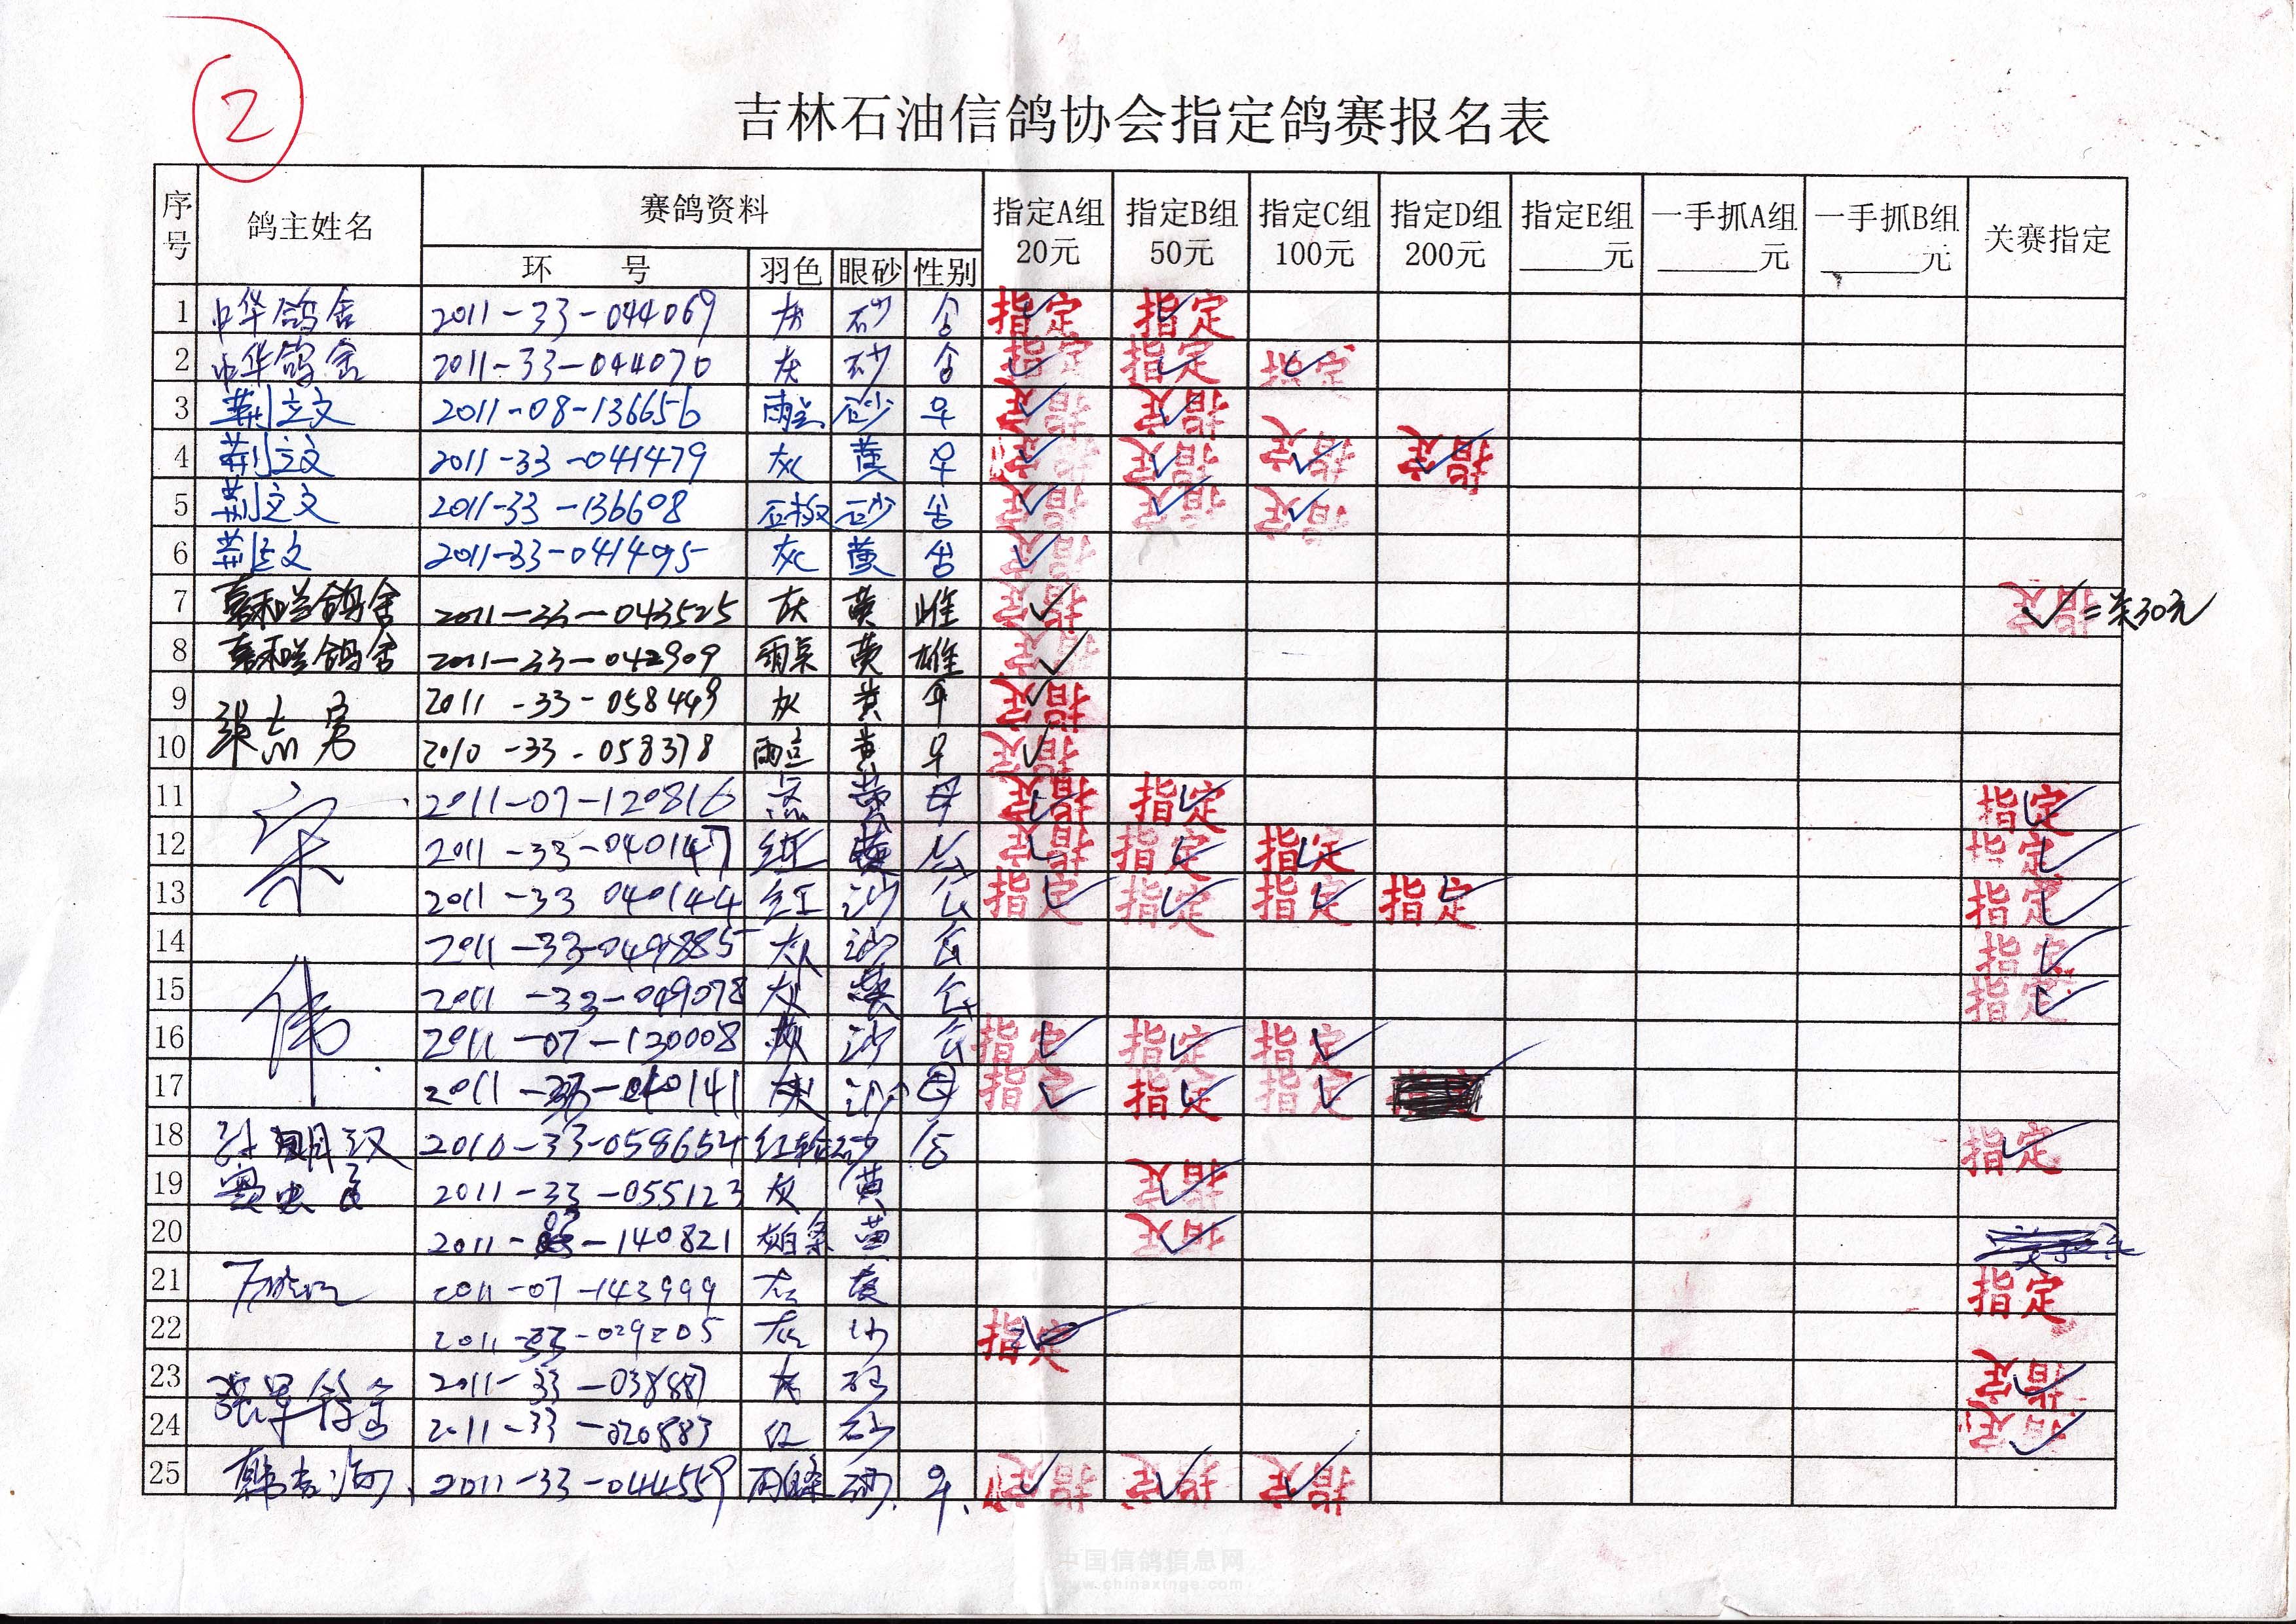 2
吉林石油信鸽协会指定鸽赛报名表
序号 鸽主姓名 赛鸽资料 指定A组 20元 指定B组 50元 指定C组 100元 指定D组 200元 指定E组 ______元 一手抓A组 ______元 一手抓B组 ______元 关赛指定
环 号 羽色 眼砂 性别
1 中华鸽舍 2011-33-044069 灰 砂 指定 指定
2 中华鸽舍 2011-33-044070 灰 砂 指定 指定 指定
3 荆立文 2011-08-136656 雨点 砂 ♀ 指定 指定
4 荆立文 2011-33-041479 灰 黄 ♀ 指定 指定 指定 指定
5 荆立文 2011-33-136608 砂 指定 指定 指定
6 荆立文 2011-33-041495 灰 黄 指定
7 鸽舍 2011-33-043525 灰 黄 雌 指定 指定 =关30元
8 鸽舍 2011-33-042909 雨点 黄 雄 指定
9 张志勇 2011-33-058449 灰 黄 ♀ 指定
10 2010-33-058378 雨点 黄 ♀ 指定
11 宋伟 2011-07-120816 黄 母 指定 指定 指定
12 2011-33-040147 红 黄 公 指定 指定 指定 指定
13 2011-33 040144 红 沙 公 指定 指定 指定 指定 指定
14 2011-33-049885 灰 沙 公 指定
15 2011-33-049078 灰 黄 公 指定
16 2011-07-120008 灰 沙 公 指定 指定 指定
17 2011-33-040141 灰 沙 母 指定 指定 指定
18 2010-33-058654 红轮 砂 指定
19 2011-33-055123 灰 黄 指定
20 2011-03-140821 黄 指定
21 2011-07-143999 灰 黄 指定
22 2011-33-029205 灰 沙 指定
23 2011-33-038887 灰 砂 指定
24 2011-33-020883 红 砂 指定
25 韩吉海 2011-33-044559 砂 ♀ 指定 指定 指定
中国信鸽信息网
www.chinaxinge.com